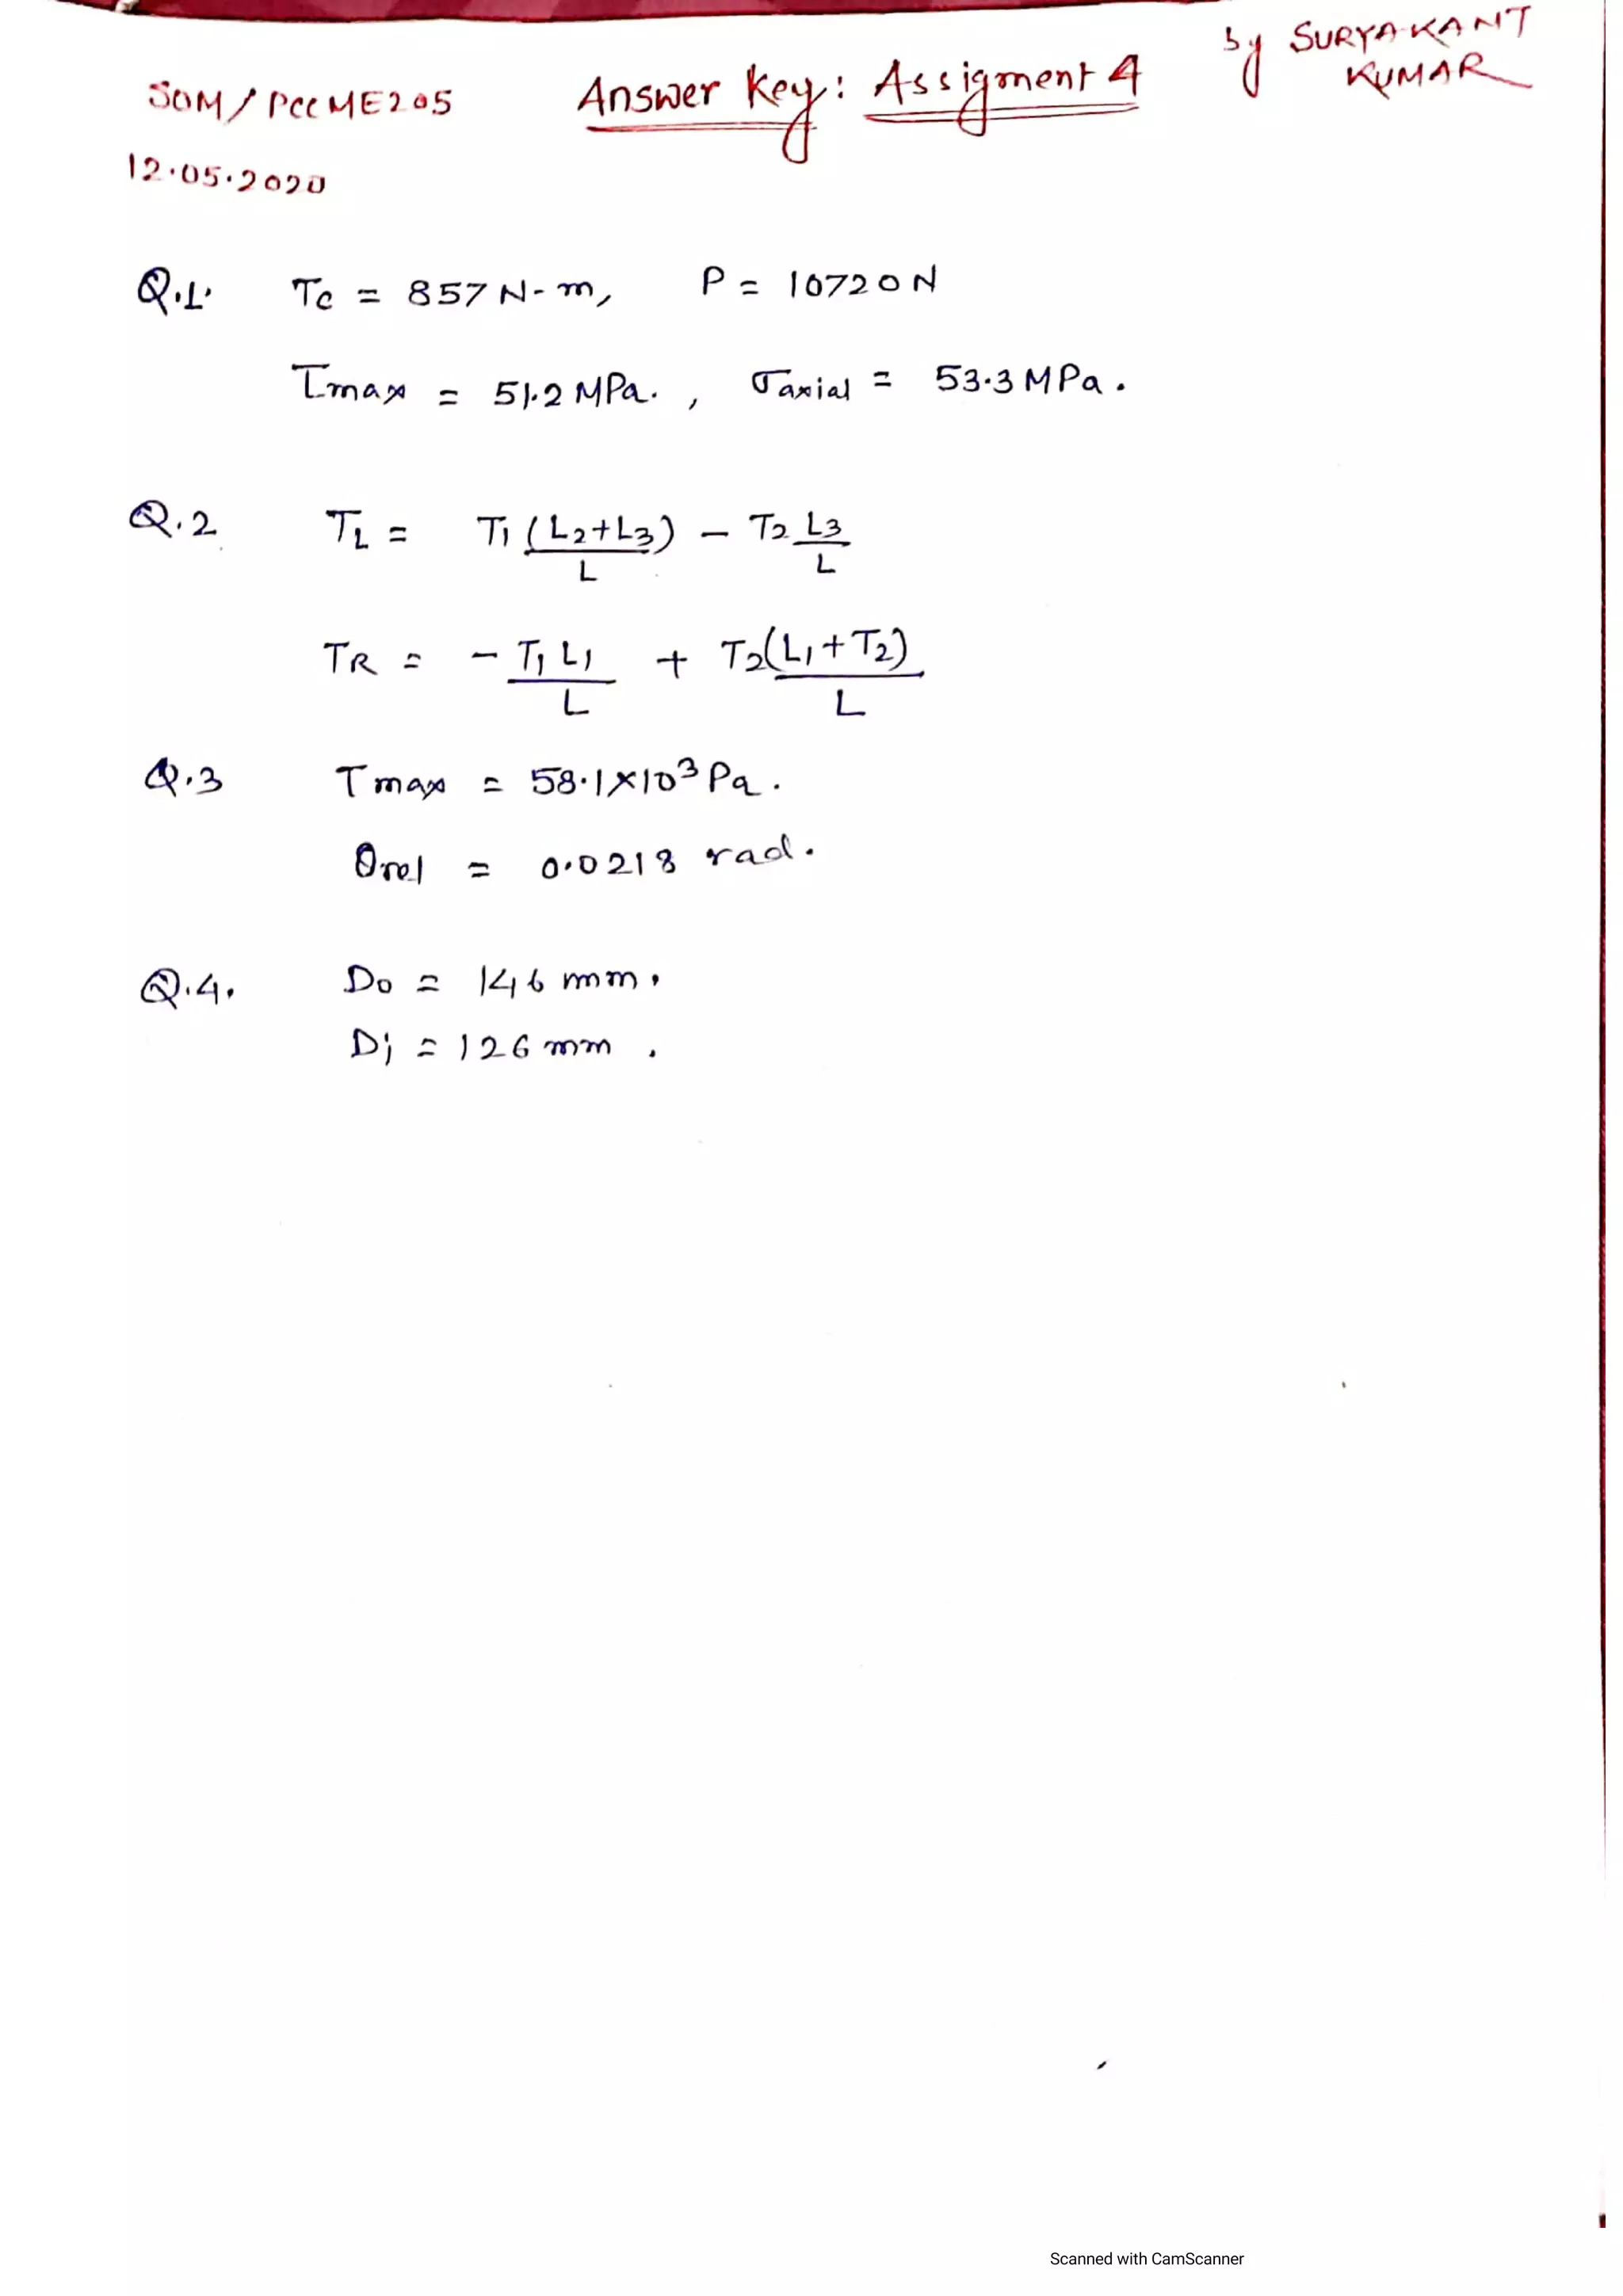 by SURYAKANT
KUMAR
SOM / PCCME205 Answer Key: Assigment 4
12.05.2020
Q.1. Tc = 857 N-m, P = 10720 N
τmax = 51.2 MPa. , σaxial = 53.3 MPa.
Q.2 TL = T1 (L2+L3)/L - T2 L3/L
TR = - T1 L1/L + T2(L1+T2)/L
Q.3 Tmax = 58.1×10³ Pa.
θrel = 0.0218 rad.
Q.4. Do = 146 mm.
Di = 126 mm.
Scanned with CamScanner